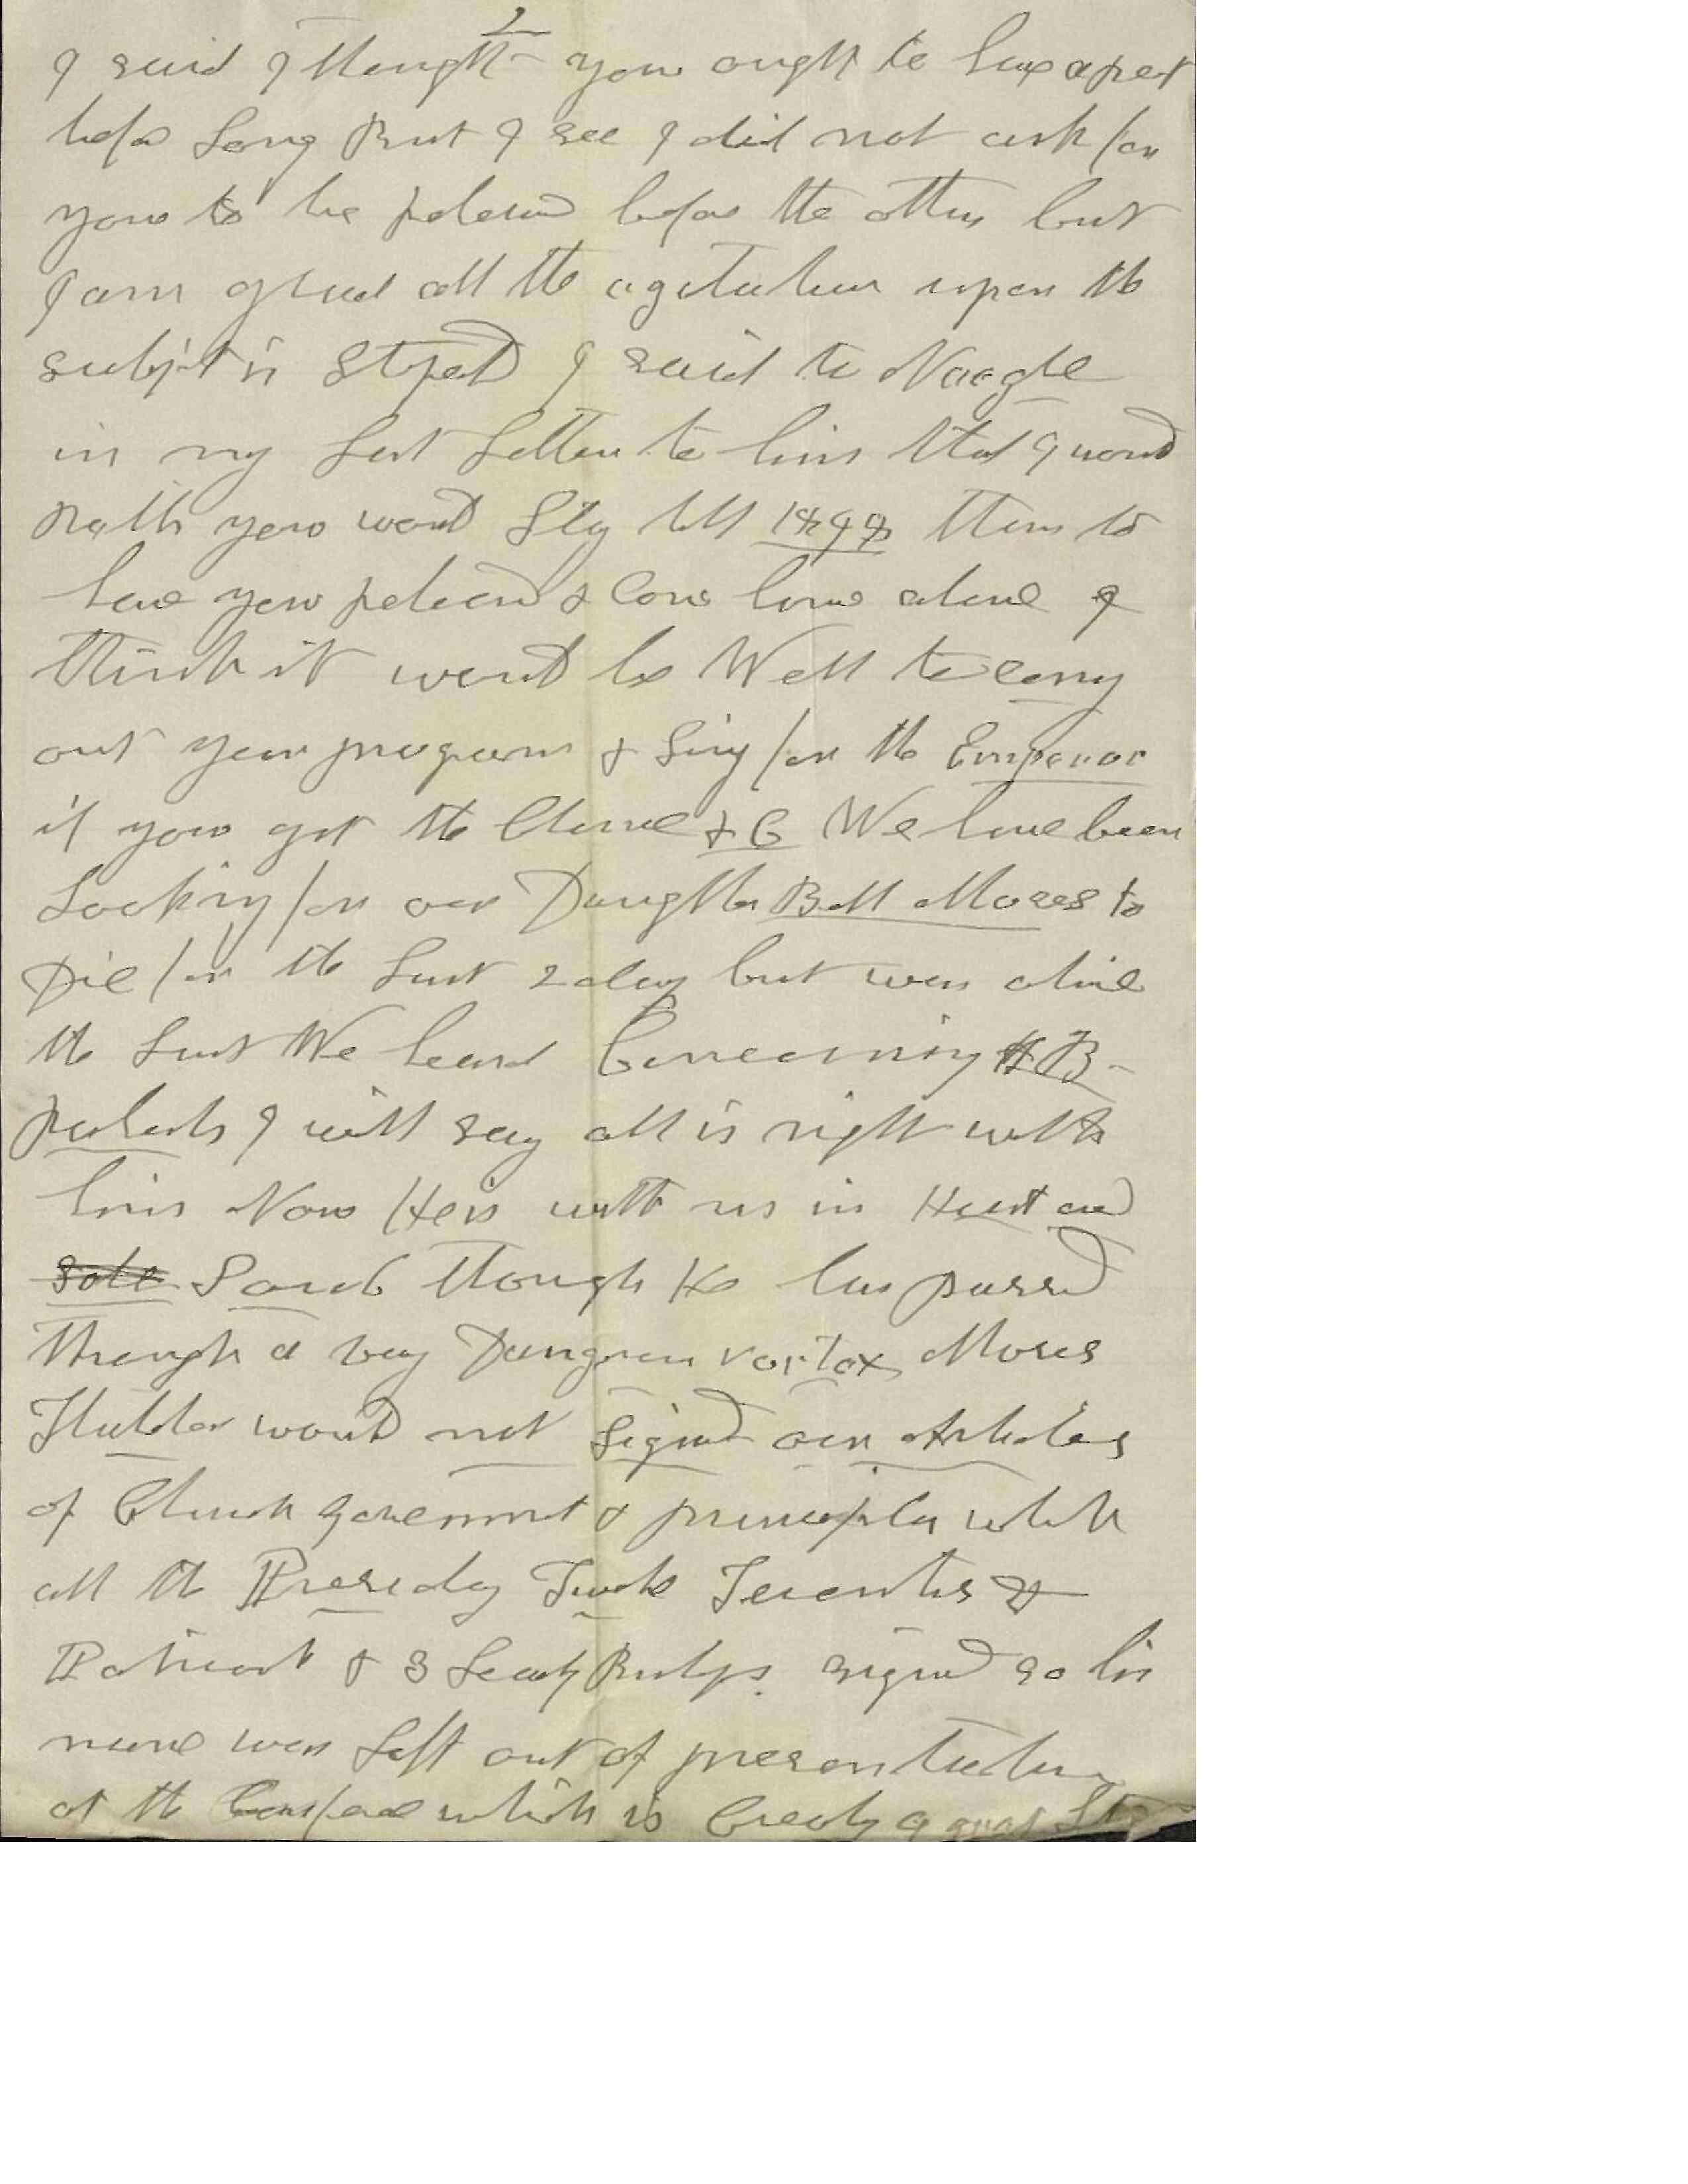 2
I said I thought you ought to have a rest
before Long But I see I did not ask for
you to be releasd before the others but
I am glad all the agitation upon the
subjct is stoped I said to Naegle
in my Last Letter to him that I would
rathr you would Stay till 1899 then to
have you releasd & Come home alone I
think it would be Well to carry
out your program & Sing for the Emperor
if you get the Chance & C We have been
Looking for our Daughter Bell Moses to
Die for the Last 2 day but was alive
the Last We heard Concerning B H
Roberts I will say all is right with
him Now He is with us in Heart and
sole Soul though He has passed
through a very Dangrous vortox Moses
Thatcher would not Signd our Articles
of Church Goverment & principles which
all the Presidcy Twelve Seventies &
Patriarch & 3 Leady Bishps. signed so his
name was Left out of presentation
at the Confrence which is Creatig a great